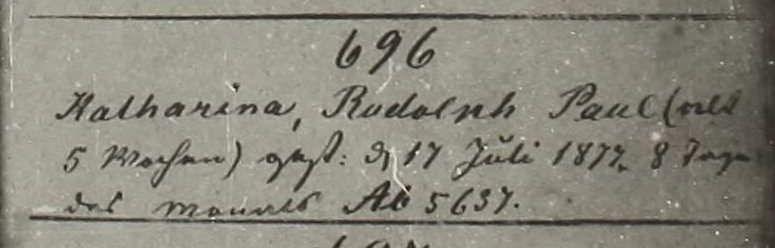 696
Katharina, Rudolph Paul (alt
5 Wochen) gest: d 17 Juli 1877. 8 Tage
des Monats Ab 5637.